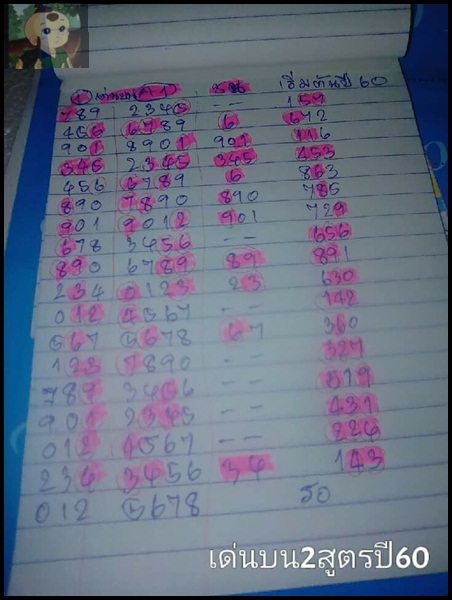 789 2345 -- 159
456 6789 6 672
901 8901 901 116
345 2345 345 453
456 6789 6 863
890 7890 890 785
901 9012 901 729
678 3456 -- 656
890 6789 89 891
234 0123 23 630
012 4567 -- 142
567 5678 67 360
123 7890 327
789 3456 -- 519
901 2345 -- 431
012 4567 --
234 3456 34 143
012 5678 รอ
เด่นบน2สูตรปี60